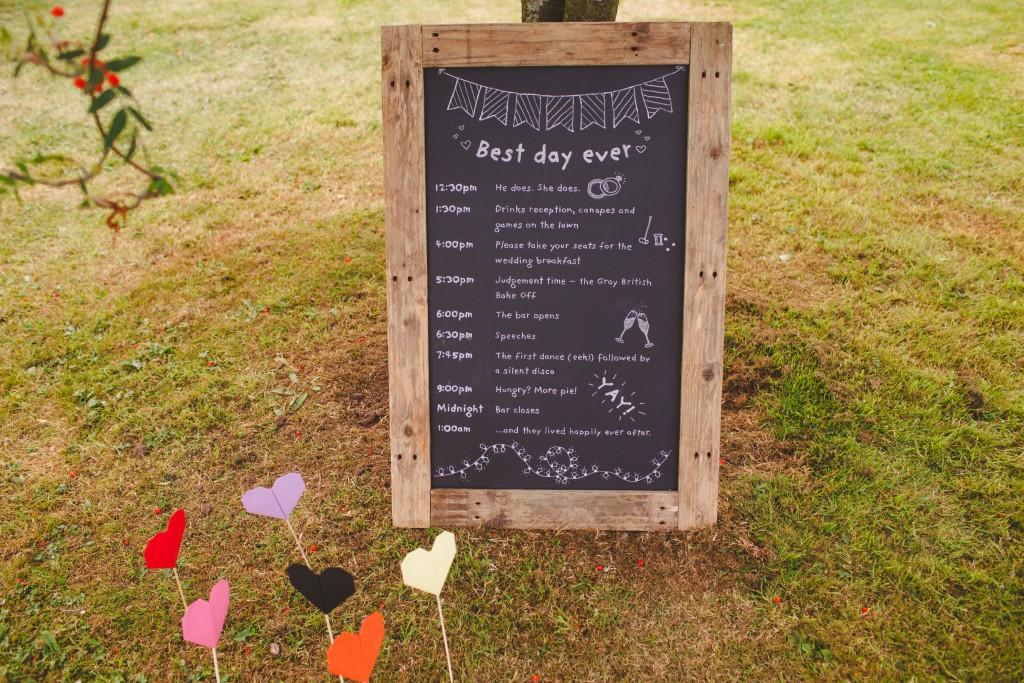 Best day ever
12:30pm He does. She does.
1:30pm Drinks reception, canapes and
games on the lawn
4:00pm Please take your seats for the
wedding breakfast
5:30pm Judgement time – the Gray British
Bake Off
6:00pm The bar opens
6:30pm Speeches
7:45pm The first dance (eek!) followed by
a silent disco
9:00pm Hungry? More pie!
YAY!
Midnight Bar closes
1:00am ...and they lived happily ever after.